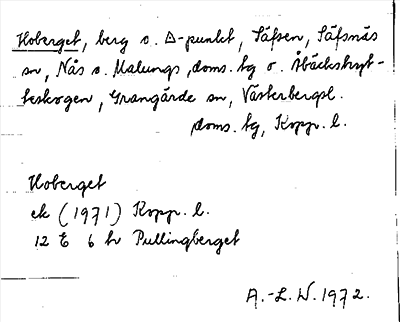 Hoberget, berg o. △-punkt, Säfsen, Säfsnäs
sn, Nås o. Malungs doms. tg o. Abäckstryt-
teskogen, Grangärde sn, Västerbergsl.
doms. tg, Kopp. l.
Hoberget
ek (1971) Kopp. l.
12 E 6 h Pullingberget
A.-L. W. 1972.